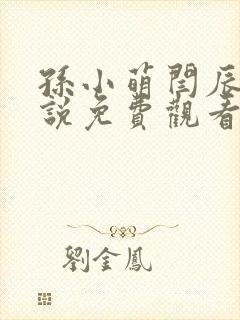 孫小萌閆辰
說免費觀看
劉金鳳